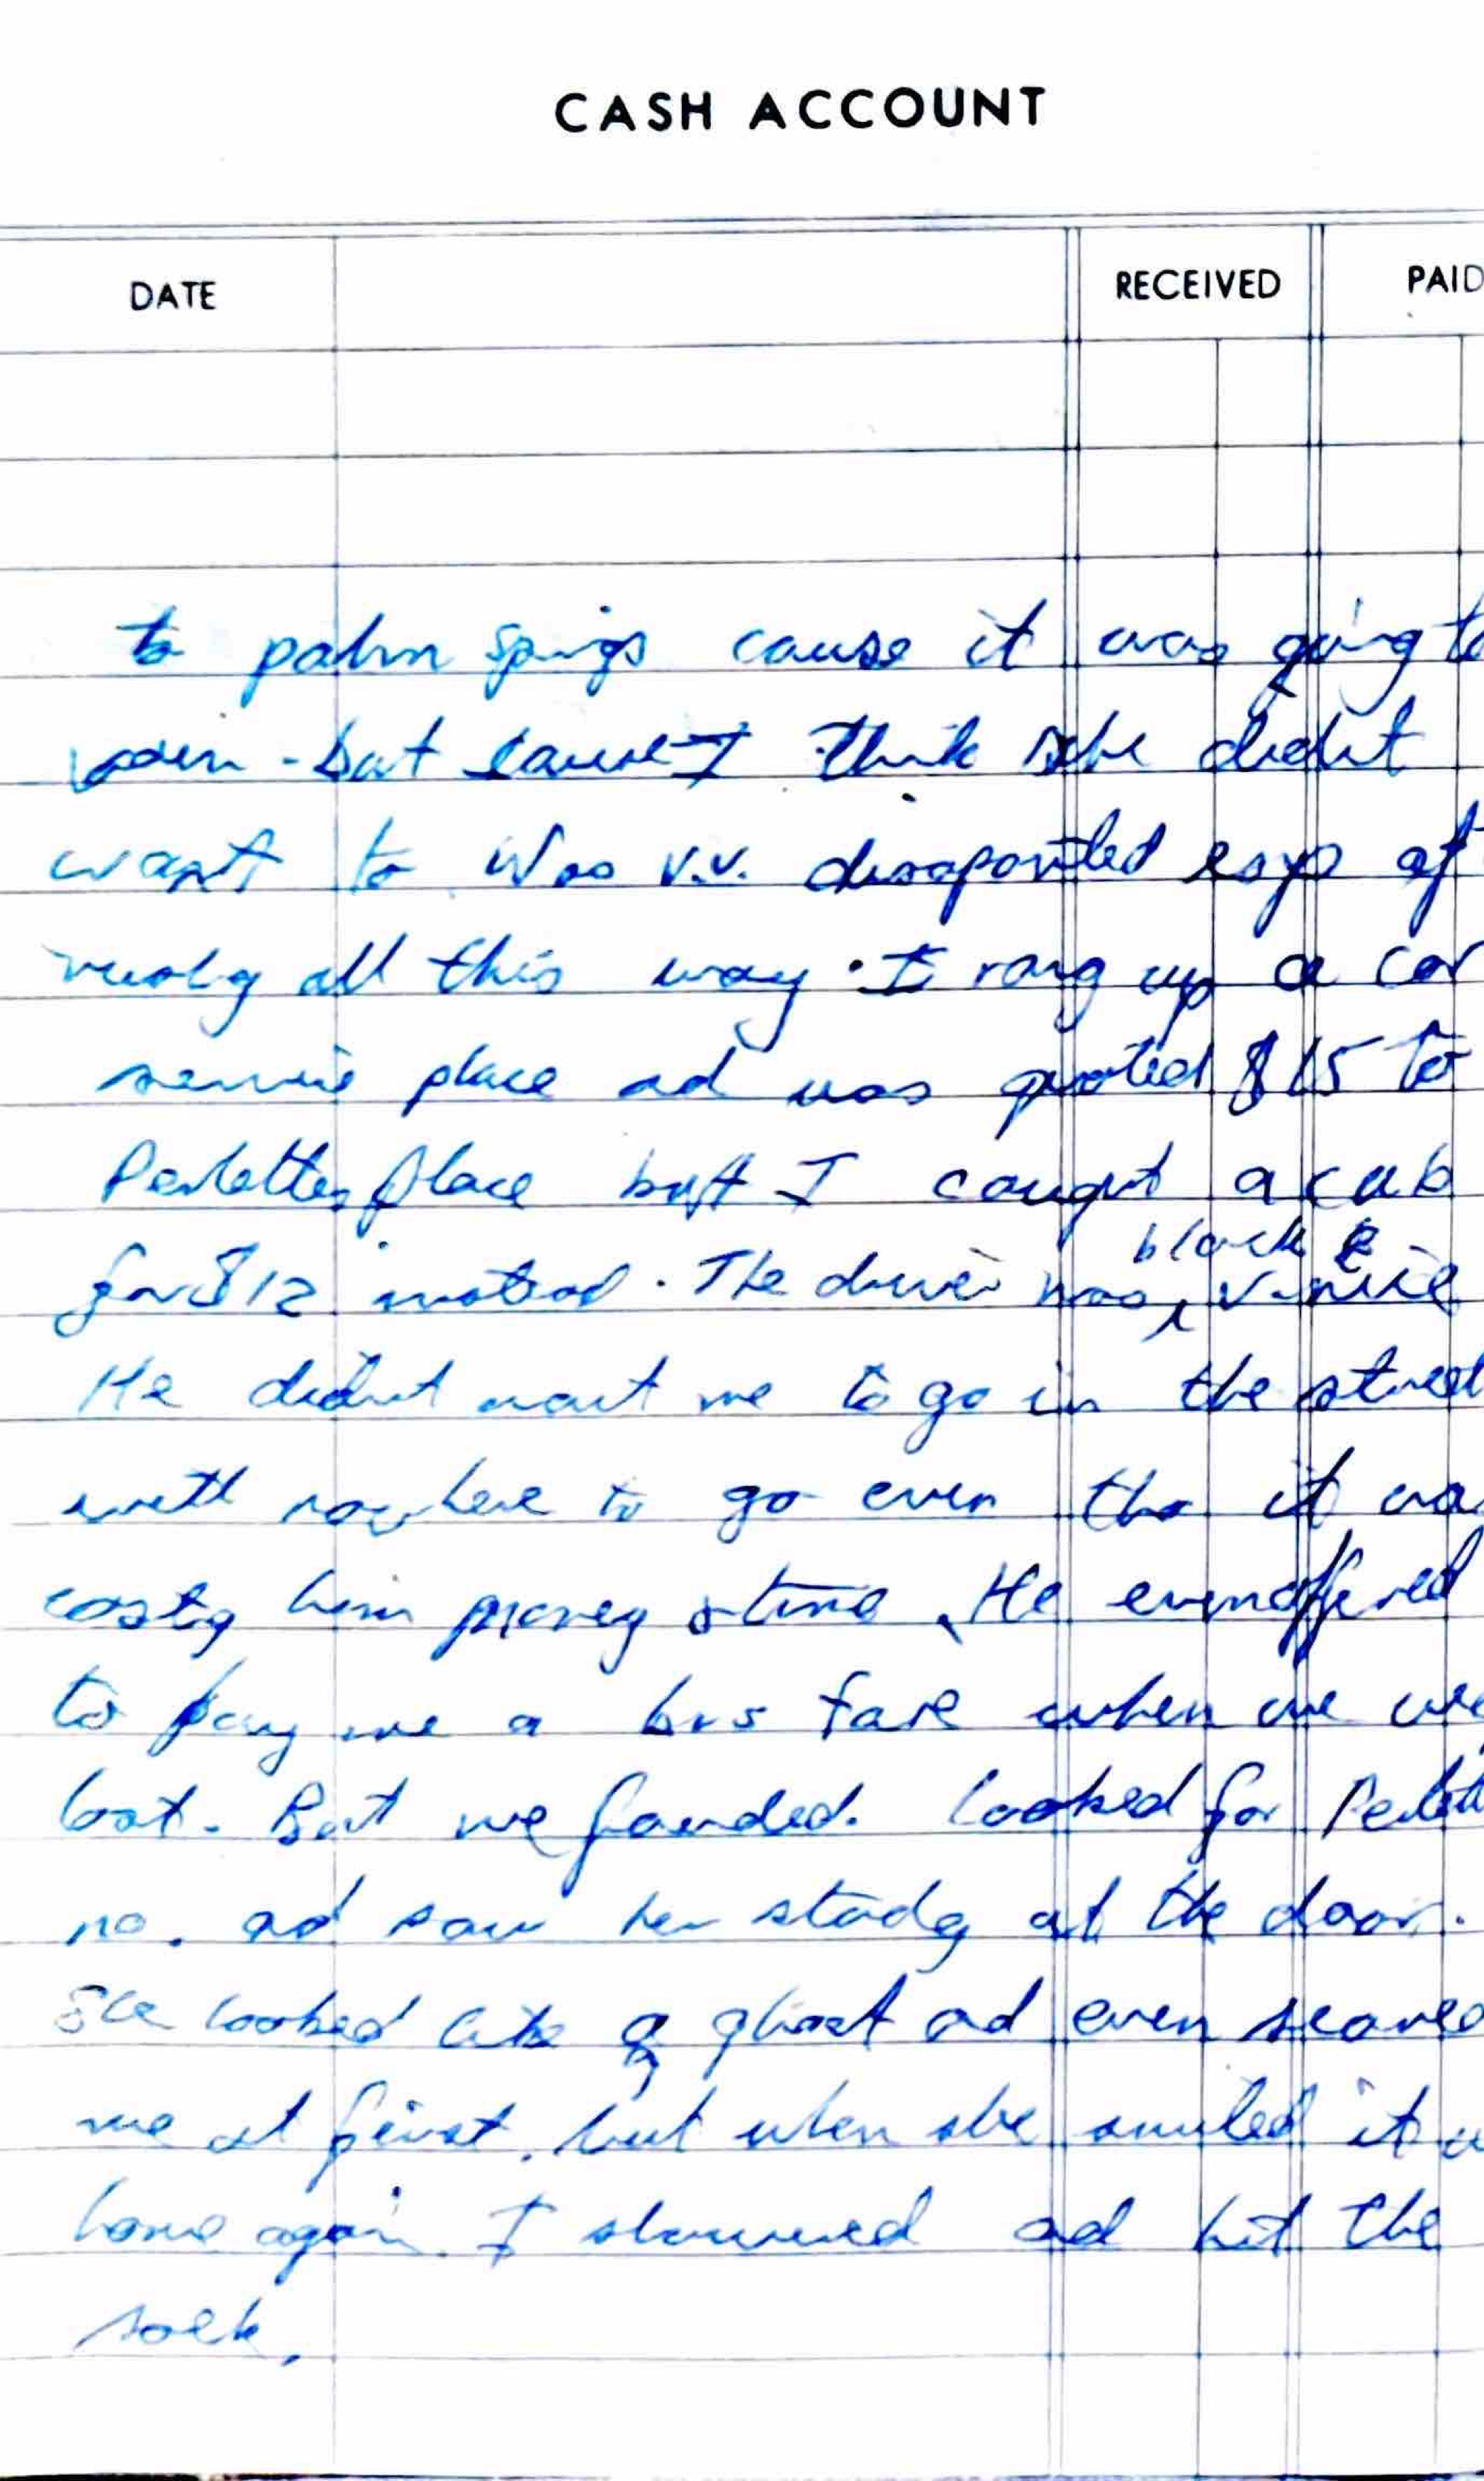 CASH ACCOUNT
DATE RECEIVED PAID
to palm springs cause it was going to
but cause I think she didnt
want to Was v.v. disapointed esp af
all this way. I rang up a car
service place ad was quoted $15 to
Perlettes place but I caught a cab
black &
for $12 instead. The driver was, v. nice
He didnt want me to go in the street
with nowhere to go even tho it wa
costg him money & time. He even offered
to pay me a bus fare when we we
lost. But we founded. Looked for Perlett
no. ad saw her standg at the door.
She looked like a ghost ad even scared
me at first. but when she smiled it w
home again. I showered ad hit the
sack.